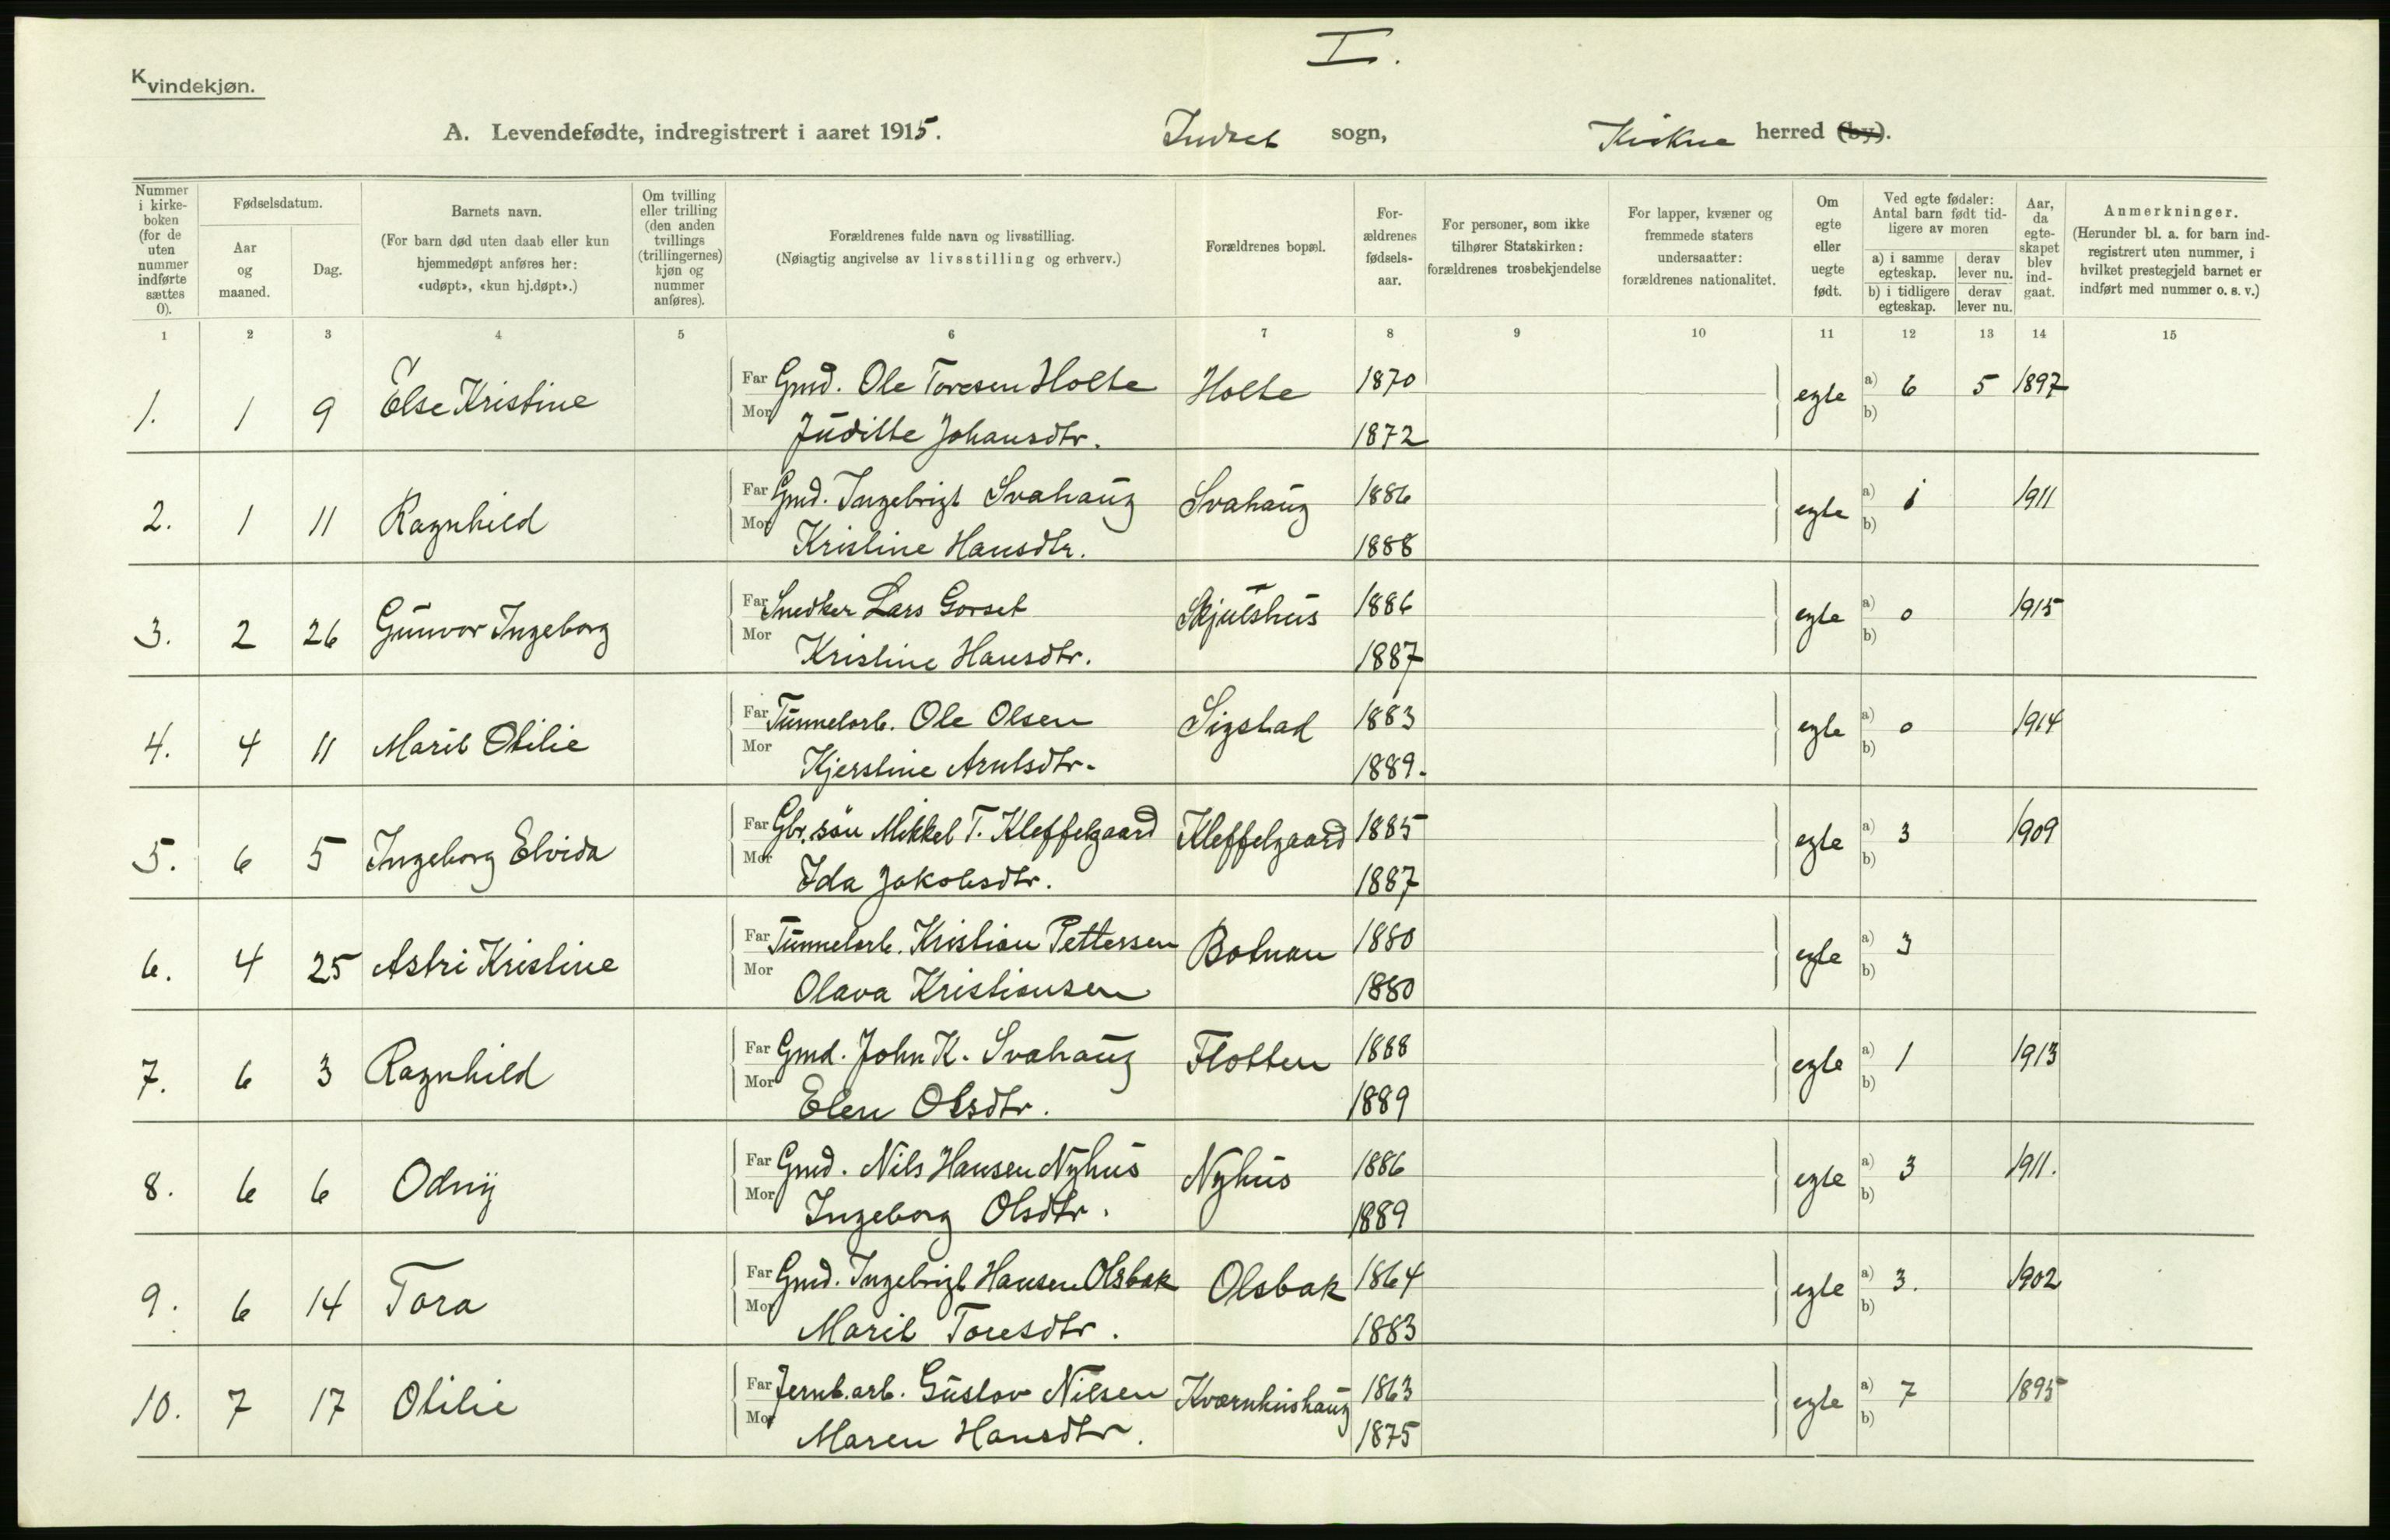 I.
Kvindekjøn.
A. Levendefødte, indregistrert i aaret 1915. Indset sogn, Kvikne herred (by).
Nummer i kirkeboken (for de uten nummer indførte sættes 0).
Fødselsdatum.
Aar og maaned.
Dag.
Barnets navn.
(For barn død uten daab eller kun hjemmedøpt anføres her: «udøpt», «kun hj.døpt».)
Om tvilling eller trilling (den anden tvillings (trillingernes) kjøn og nummer anføres).
Forældrenes fulde navn og livsstilling.
(Nøiagtig angivelse av livsstilling og erhverv.)
Forældrenes bopæl.
Forældrenes fødselsaar.
For personer, som ikke tilhører Statskirken: forældrenes trosbekjendelse
For lapper, kvæner og fremmede staters undersaatter: forældrenes nationalitet.
Om egte eller uegte født.
Ved egte fødsler: Antal barn født tidligere av moren
a) i samme egteskap.
derav lever nu.
b) i tidligere egteskap.
derav lever nu.
Aar, da egteskapet blev indgaat.
Anmerkninger.
(Herunder bl. a. for barn indregistrert uten nummer, i hvilket prestegjeld barnet er indført med nummer o. s. v.)
1 2 3 4 5 6 7 8 9 10 11 12 13 14 15
1. 1 9 Else Kristine Far Gmd. Ole Toresen Holte Holte 1870 egte a) 6 5 1897
Mor Juditte Johansdtr. 1872 b)
2. 1 11 Ragnhild Far Gmd. Ingebrigt Svahaug Svahaug 1886 egte a) 1 1911
Mor Kristine Hansdtr. 1888 b)
3. 2 26 Gunvor Ingeborg Far Snedker Lars Gorset Skjulshus 1886 egte a) 0 1915
Mor Kristine Hansdtr. 1887 b)
4. 4 11 Marit Otilie Far Tunnelarb. Ole Olsen Sigstad 1883 egte a) 0 1914
Mor Kjerstine Arntsdtr. 1889. b)
5. 6 5 Ingeborg Elvida Far Gbr.søn Mikkel T. Kleffelgaard Kleffelgaard 1885 egte a) 3 1909
Mor Ida Jakobsdtr. 1887 b)
6. 4 25 Astri Kristine Far Tunnelarb. Kristian Pettersen Botnan 1880 egte a) 3
Mor Olava Kristiansen 1880 b)
7. 6 3 Ragnhild Far Gmd. John K. Svahaug Flotten 1888 egte a) 1 1913
Mor Elen Olsdtr. 1889 b)
8. 6 6 Odny Far Gmd. Nils Hansen Nyhus Nyhus 1886 egte a) 3 1911.
Mor Ingeborg Olsdtr. 1889 b)
9. 6 14 Tora Far Gmd. Ingebrigt Hansen Olsbak Olsbak 1864 egte a) 3. 1902
Mor Marit Toresdtr. 1883 b)
10. 7 17 Otilie Far Jernb.arb. Gustav Nilsen Kværnhushaug 1863 egte a) 7 1895
Mor Maren Hansdtr. 1875 b)